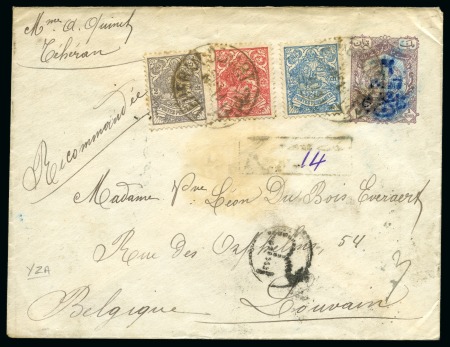 Mme A. Quinet
Téhéran
Recommandée
14
Madame Vve Léon Du Bois Everaert
Rue des Orphelins, 54
YZA
Belgique Louvain